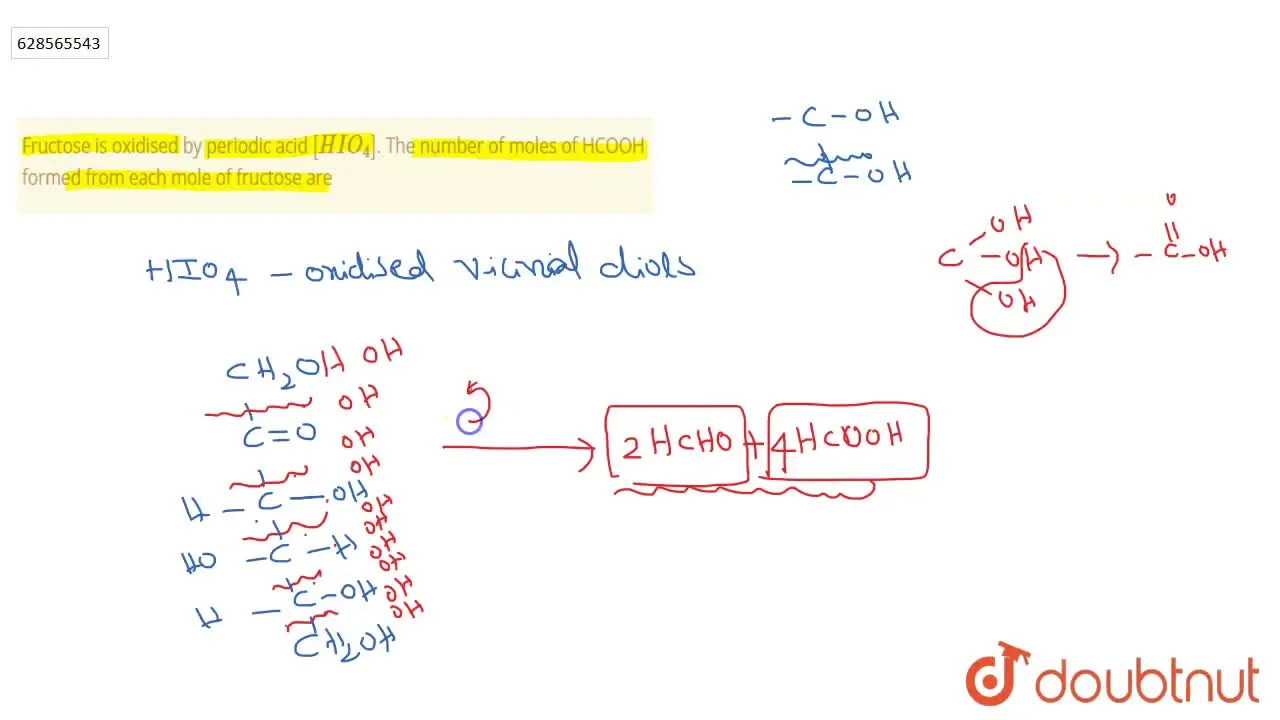 628565543
Fructose is oxidised by periodic acid [HIO₄]. The number of moles of HCOOH
formed from each mole of fructose are
- C - OH
- C - OH
HIO4 - oxidised vicinal diols
C OH
- OH
OH
→
O
||
- C - OH
CH2OH OH
OH
C=O OH
OH
H - C - OH
OH
OH
HO - C - H OH
OH
H - C - OH OH
OH
CH2OH
→ 2HCHO + 4HCOOH
doubtnut